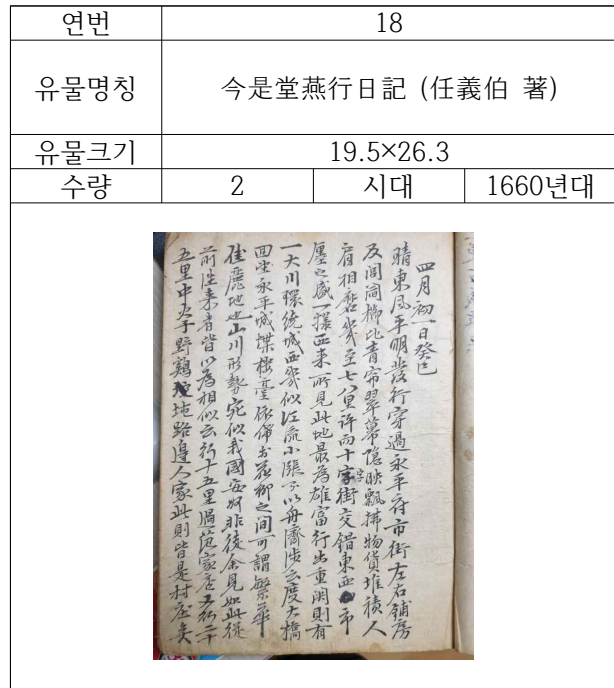 연번 18
유물명칭 今是堂燕行日記 (任義伯 著)
유물크기 19.5×26.3
수량 2 시대 1660년대
四月初一日癸巳
晴東風平明發行穿過永平府市街左右鋪房
及閭閻櫛比青帘翠幕隱映飄拂物貨堆積人
肩相磨幾至七八里許而十字街交錯東西市
塵之盛一樣西來所見此地最爲雄富行出重門則有
一大川環繞城西幾似江流小漲則以舟濟涉云度大橋
回望永平城堞樓臺依俙於花柳之間可謂繁華
佳麗地也山川形勢宛似我國安州非徒余見如此從
前往來者皆以爲相似云行十五里過范家店又行二十
五里中火于野鷄坨路邊人家此則皆是村庄矣